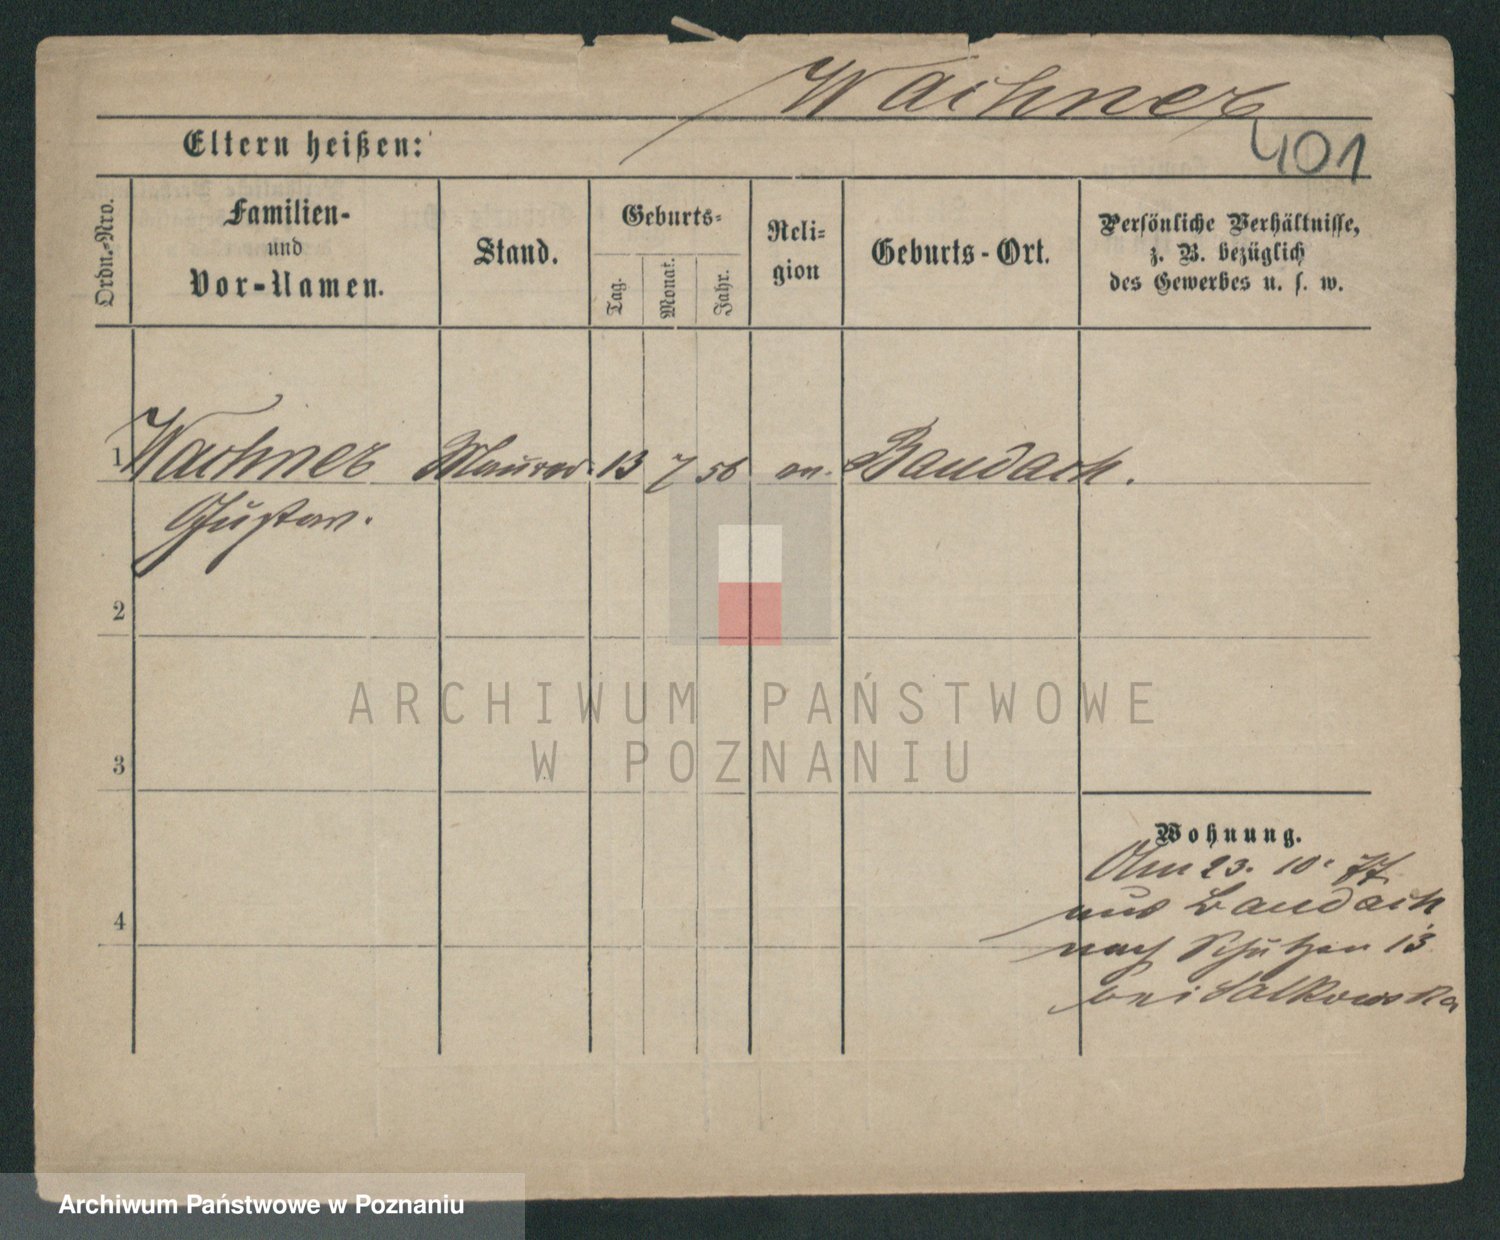 Wachner
401
Eltern heißen:
Ordn.-Nro.
Familien-
und
Vor-Namen.
Stand.
Geburts-
Tag.
Monat.
Jahr.
Reli-
gion
Geburts-Ort.
Persönliche Verhältnisse,
z. B. bezüglich
des Gewerbes u. s. w.
1 Wachner Maurer 13 7 56 ev. Baudach.
Gustav.
2
3
4
Wohnung.
Am 23. 10. 77
aus Baudach
nach Schützen 13
bei Salkowska
ARCHIWUM PAŃSTWOWE
W POZNANIU
Archiwum Państwowe w Poznaniu